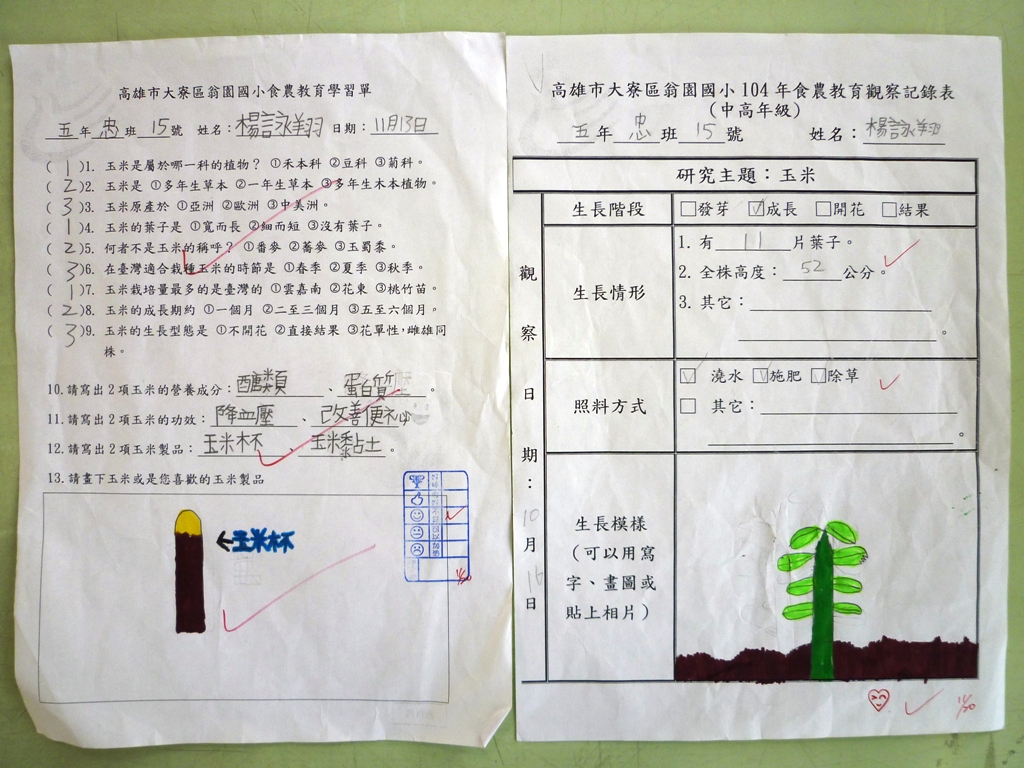 高雄市大寮區翁園國小食農教育學習單
五年忠班15號 姓名:楊詠翔 日期:11月13日
(1)1. 玉米是屬於哪一科的植物? ①禾本科 ②豆科 ③菊科。
(2)2. 玉米是 ①多年生草本 ②一年生草本 ③多年生木本植物。
(3)3. 玉米原產於 ①亞洲 ②歐洲 ③中美洲。
(1)4. 玉米的葉子是 ①寬而長 ②細而短 ③沒有葉子。
(2)5. 何者不是玉米的稱呼? ①番麥 ②蕎麥 ③玉蜀黍。
(3)6. 在臺灣適合栽種玉米的時節是 ①春季 ②夏季 ③秋季。
(1)7. 玉米栽培量最多的是臺灣的 ①雲嘉南 ②花東 ③桃竹苗。
(2)8. 玉米的成長期約 ①一個月 ②二至三個月 ③五至六個月。
(3)9. 玉米的生長型態是 ①不開花 ②直接結果 ③花單性,雌雄同
株。
10.請寫出2項玉米的營養成分:醣類、蛋白質。
11.請寫出2項玉米的功效:降血壓、改善便祕。
12.請寫出2項玉米製品:玉米杯、玉米黏土。
13.請畫下玉米或是您喜歡的玉米製品
←玉米杯
11/30
高雄市大寮區翁園國小104年食農教育觀察記錄表
(中高年級)
五年忠班15號 姓名:楊詠翔
研究主題:玉米
觀察日期:10月16日
生長階段
□發芽 ☑成長 □開花 □結果
生長情形
1. 有11片葉子。
2. 全株高度:52公分。
3. 其它:
。
照料方式
☑ 澆水 ☑施肥 ☑除草
□ 其它:
。
生長模樣
(可以用寫
字、畫圖或
貼上相片)
11/30